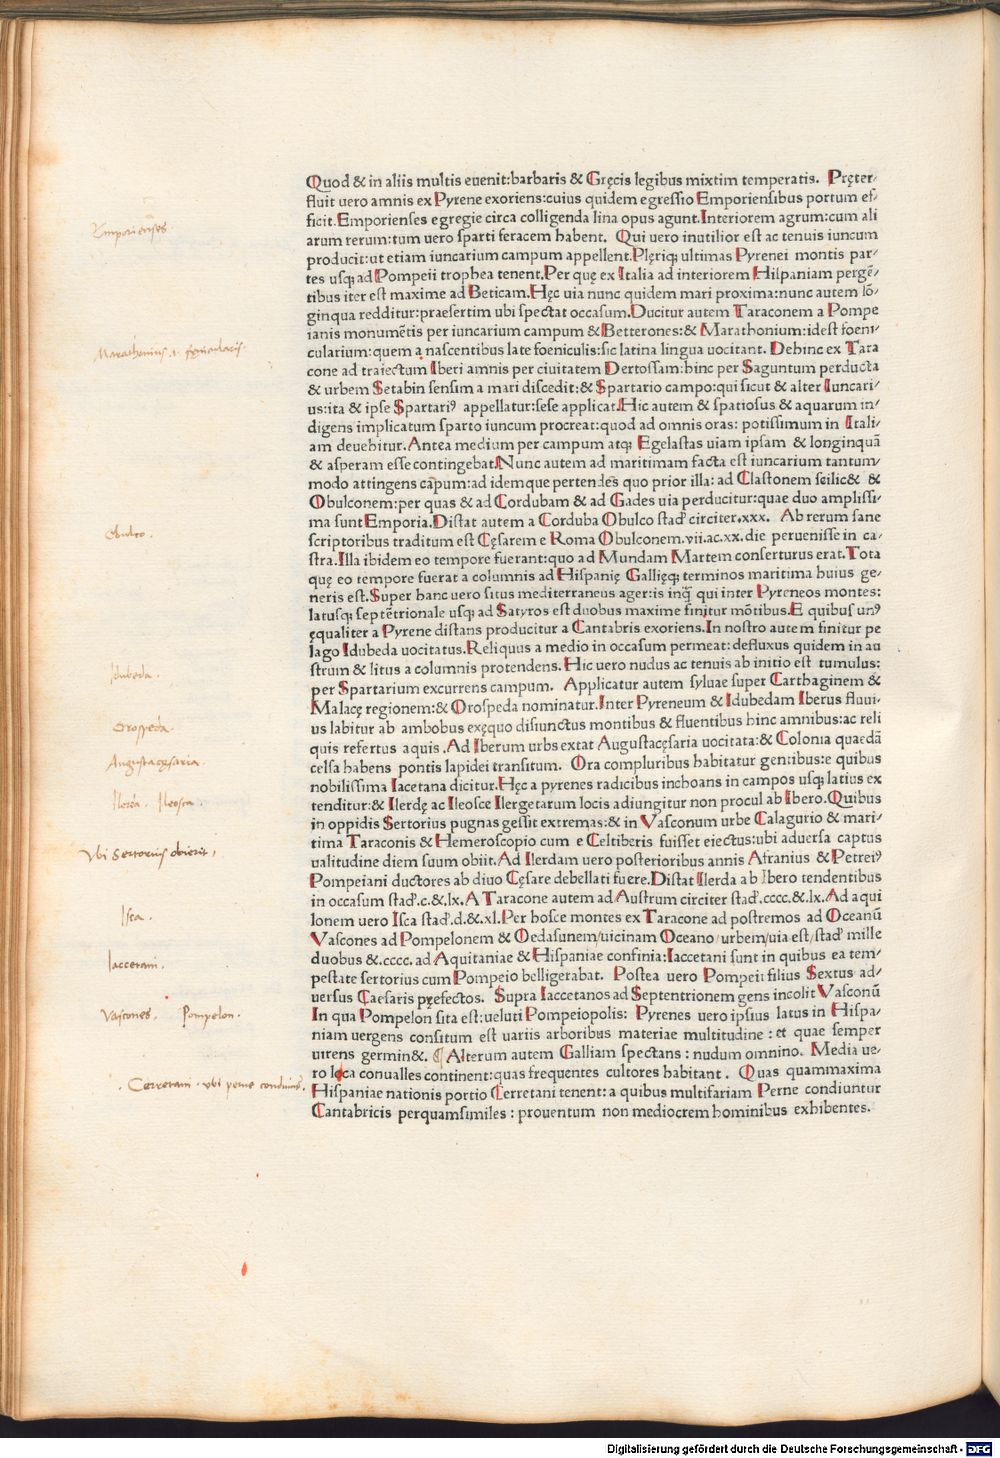 Quod & in aliis multis euenit:barbaris & Gręcis legibus mixtim temperatis. Pręter/
fluit uero amnis ex Pyrene exoriens:cuius quidem egressio Emporiensibus portum ef/
ficit.Emporienses egregie circa colligenda lina opus agunt.Interiorem agrum:cum ali
arum rerum:tum uero sparti feracem habent. Qui uero inutilior est ac tenuis iuncum
producit:ut etiam iuncarium campum appellent.Plęriqꝫ ultimas Pyrenei montis par/
tes usqꝫ ad Pompeii trophea tenent.Per quę ex Italia ad interiorem Hispaniam pergē/
tibus iter est maxime ad Beticam.Hęc uia nunc quidem mari proxima:nunc autem lō/
ginqua redditur:praesertim ubi spectat occasum.Ducitur autem Taraconem a Pompe
ianis monumētis per iuncarium campum & Betterones:& Marathonium:idest foeni/
cularium:quem a nascentibus late foeniculis:sic latina lingua uocitant. Dehinc ex Tara
cone ad traiectum Iberi amnis per ciuitatem Dertossam:hinc per Saguntum perducta
& urbem Setabin sensim a mari discedit:& Spartario campo:qui sicut & alter Iuncari/
us:ita & ipse Spartariꝰ appellatur:sese applicat.Hic autem & spatiosus & aquarum in/
digens implicatum sparto iuncum procreat:quod ad omnis oras: potissimum in Itali/
am deuehitur.Antea medium per campum atqꝫ Egelastas uiam ipsam & longinquā
& asperam esse contingebat.Nunc autem ad maritimam facta est iuncarium tantum/
modo attingens campum:ad idemque pertendēs quo prior illa: ad Clastonem scilic& &
Obulconem:per quas & ad Cordubam & ad Gades uia perducitur:quae duo amplissi/
ma sunt Emporia.Distat autem a Corduba Obulco stad' circiter.xxx. Ab rerum sane
scriptoribus traditum est Cęsarem e Roma Obulconem.vii.ac.xx.die peruenisse in ca/
stra.Illa ibidem eo tempore fuerant:quo ad Mundam Martem conserturus erat.Tota
quę eo tempore fuerat a columnis ad Hispanię Gallięqꝫ terminos maritima huius ge/
neris est.Super hanc uero situs mediterraneus ager:is inq̄ qui inter Pyreneos montes:
latusqꝫ septētrionale usqꝫ ad Satyros est duobus maxime finitur mōtibus.E quibus unꝰ
ęqualiter a Pyrene distans producitur a Cantabris exoriens.In nostro autem finitur pe
lago Idubeda uocitatus.Reliquus a medio in occasum permeat:defluxus quidem in au
strum & litus a columnis protendens.Hic uero nudus ac tenuis ab initio est tumulus:
per Spartarium excurrens campum. Applicatur autem syluae super Carthaginem &
Malacę regionem:& Orospeda nominatur.Inter Pyreneum & Idubedam Iberus fluui/
us labitur ab ambobus exęquo disiunctus montibus & fluentibus hinc amnibus:ac reli
quis refertus aquis.Ad Iberum urbs extat Augustacęsaria uocitata:& Colonia quaedā
celsa habens pontis lapidei transitum. Ora compluribus habitatur gentibus:e quibus
nobilissima Iacetana dicitur.Hęc a pyrenes radicibus inchoans in campos usqꝫ latius ex
tenditur:& Ilerdę ac Ileosce Ilergetarum locis adiungitur non procul ab Ibero.Quibus
in oppidis Sertorius pugnas gessit extremas:& in Vasconum urbe Calagurio & mari/
tima Taraconis & Hemeroscopio cum e Celtiberis fuisset eiectus:ubi aduersa captus
ualitudine diem suum obiit.Ad Ilerdam uero posterioribus annis Afranius & Petreiꝰ
Pompeiani ductores ab diuo Cęsare debellati fuere.Distat Ilerda ab Ibero tendentibus
in occasum stad'.c.&.lx.A Taracone autem ad Austrum circiter stad'.cccc.&.lx.Ad aqui
lonem uero Isca stad'.d.&.xl.Per hosce montes ex Taracone ad postremos ad Oceanū
Vascones ad Pompelonem & Oedasunem/uicinam Oceano/urbem/uia est/stad' mille
duobus &.cccc.ad Aquitaniae & Hispaniae confinia:Iaccetani sunt in quibus ea tem/
pestate sertorius cum Pompeio belligerabat. Postea uero Pompeii filius Sextus ad/
uersus Caesaris pręfectos. Supra Iaccetanos ad Septentrionem gens incolit Vasconū
In qua Pompelon sita est:ueluti Pompeiopolis: Pyrenes uero ipsius latus in Hispa/
niam uergens consitum est uariis arboribus materiae multitudine : et quae semper
uirens germin&. ¶ Alterum autem Galliam spectans : nudum omnino. Media ue/
ro loca conualles continent:quas frequentes cultores habitant. Quas quammaxima
Hispaniae nationis portio Cerretani tenent: a quibus multifariam Perne condiuntur
Cantabricis perquamsimiles : prouentum non mediocrem hominibus exhibentes.
Emporienses
Marathonius .i. fenicularis
Obulco.
Idubeda.
Orospeda.
Augustacęsaria.
Ilerda. Ileosca
Vbi Sertorius obierit,
Isca.
Iaccetani.
Vascones. Pompelon.
. Cerretani . vbi perne condiunt.
Digitalisierung gefördert durch die Deutsche Forschungsgemeinschaft - DFG